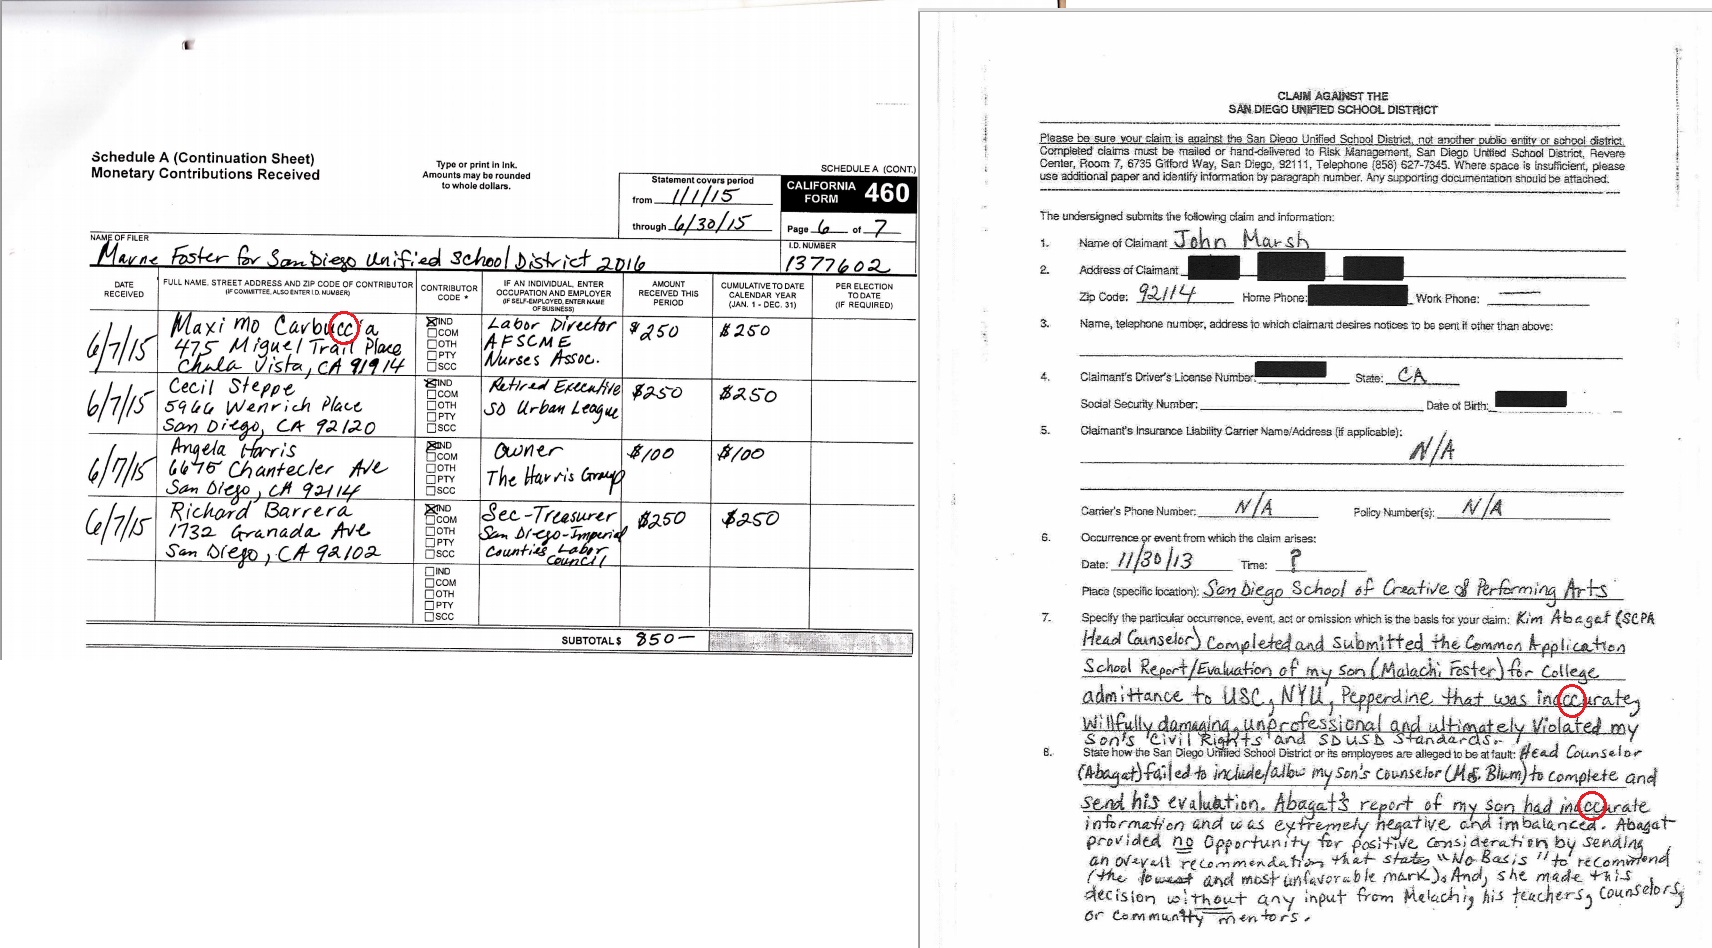 Schedule A (Continuation Sheet)
Monetary Contributions Received
Type or print in ink.
Amounts may be rounded
to whole dollars.
SCHEDULE A (CONT.)
Statement covers period
from 1/1/15
through 6/30/15
CALIFORNIA
FORM 460
Page 6 of 7
NAME OF FILER
Marne Foster for San Diego Unified School District 2016
I.D. NUMBER
1377602
DATE
RECEIVED
FULL NAME, STREET ADDRESS AND ZIP CODE OF CONTRIBUTOR
(IF COMMITTEE, ALSO ENTER I.D. NUMBER)
CONTRIBUTOR
CODE *
IF AN INDIVIDUAL, ENTER
OCCUPATION AND EMPLOYER
(IF SELF-EMPLOYED, ENTER NAME
OF BUSINESS)
AMOUNT
RECEIVED THIS
PERIOD
CUMULATIVE TO DATE
CALENDAR YEAR
(JAN. 1 - DEC. 31)
PER ELECTION
TO DATE
(IF REQUIRED)
6/7/15
Maximo Carbuccia
475 Miguel Trail Place
Chula Vista, CA 91914
IND
COM
OTH
PTY
SCC
Labor Director
AFSCME
Nurses Assoc.
$250
$250
6/7/15
Cecil Steppe
5966 Wenrich Place
San Diego, CA 92120
IND
COM
OTH
PTY
SCC
Retired Executive
SD Urban League
$250
$250
6/7/15
Angela Harris
6675 Chantecler Ave
San Diego, CA 92114
IND
COM
OTH
PTY
SCC
Owner
The Harris Group
$100
$100
6/7/15
Richard Barrera
1732 Granada Ave
San Diego, CA 92102
IND
COM
OTH
PTY
SCC
Sec-Treasurer
San Diego-Imperial
Counties Labor
Council
$250
$250
IND
COM
OTH
PTY
SCC
SUBTOTAL $ 850-
CLAIM AGAINST THE
SAN DIEGO UNIFIED SCHOOL DISTRICT
Please be sure your claim is against the San Diego Unified School District, not another public entity or school district.
Completed claims must be mailed or hand-delivered to Risk Management, San Diego Unified School District, Revere
Center, Room 7, 6735 Gifford Way, San Diego, 92111, Telephone (858) 627-7345. Where space is insufficient, please
use additional paper and identify information by paragraph number. Any supporting documentation should be attached.
The undersigned submits the following claim and information:
1. Name of Claimant John Marsh
2. Address of Claimant
Zip Code: 92114 Home Phone: Work Phone:
3. Name, telephone number, address to which claimant desires notices to be sent if other than above:
4. Claimant's Driver's License Number: State: CA
Social Security Number: Date of Birth:
5. Claimant's Insurance Liability Carrier Name/Address (if applicable):
N/A
Carrier's Phone Number: N/A Policy Number(s): N/A
6. Occurrence or event from which the claim arises:
Date: 11/30/13 Time: ?
Place (specific location): San Diego School of Creative & Performing Arts
7. Specify the particular occurrence, event, act or omission which is the basis for your claim: Kim Abagat (SCPA
Head Counselor) Completed and Submitted the Common Application
School Report/Evaluation of my son (Malachi Foster) for College
admittance to USC, NYU, Pepperdine that was inaccurate,
willfully damaging, unprofessional and ultimately Violated my
Son's Civil Rights and SDUSD Standards.
8. State how the San Diego Unified School District or its employees are alleged to be at fault: Head Counselor
(Abagat) failed to include/allow my son's Counselor (Ms. Blum) to complete and
send his evaluation. Abagat's report of my son had inaccurate
information and was extremely negative and imbalanced. Abagat
provided no Opportunity for positive consideration by sending
an overall recommendation that states "No Basis" to recommend
(the lowest and most unfavorable mark). And, she made this
decision without any input from Melachi, his teachers, counselors,
or community mentors.